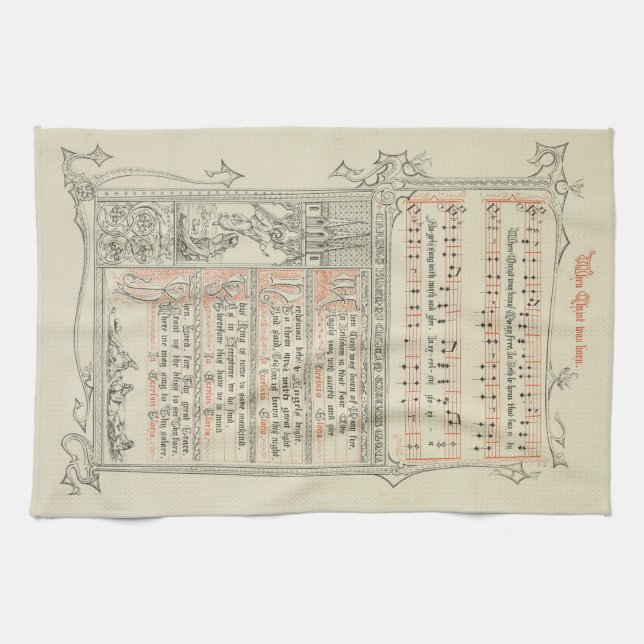 When Christ was born.
When Christ was born of Mary free, In Beth-le-hem that fair ci-ty
An-gels sang with mirth and glee, In ex-cel-sis glo-ri-a
When Christ was born of Mary free,
In Bethlehem in that fair citie
Angels sang with mirth and glee
In Excelsis Gloria.
Herdsmen beheld Angels bright,
To them appeared with great light,
And said, God's Son is born this night,
In Excelsis Gloria.
This King is come to save mankind
As in Scripture we do find
Therefore this have we in mind
In Excelsis Gloria.
Then, Lord, for Thy great Grace,
Grant us the bliss to see Thy face,
Where we may sing to Thy solace,
In Excelsis Gloria.